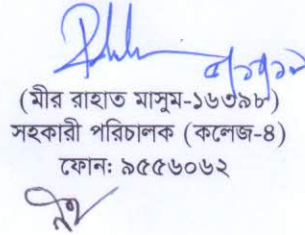 ৫/১১/১৮
(মীর রাহাত মাসুম-১৬৩৯৮)
সহকারী পরিচালক (কলেজ-৪)
ফোন: ৯৫৫৬০৬২